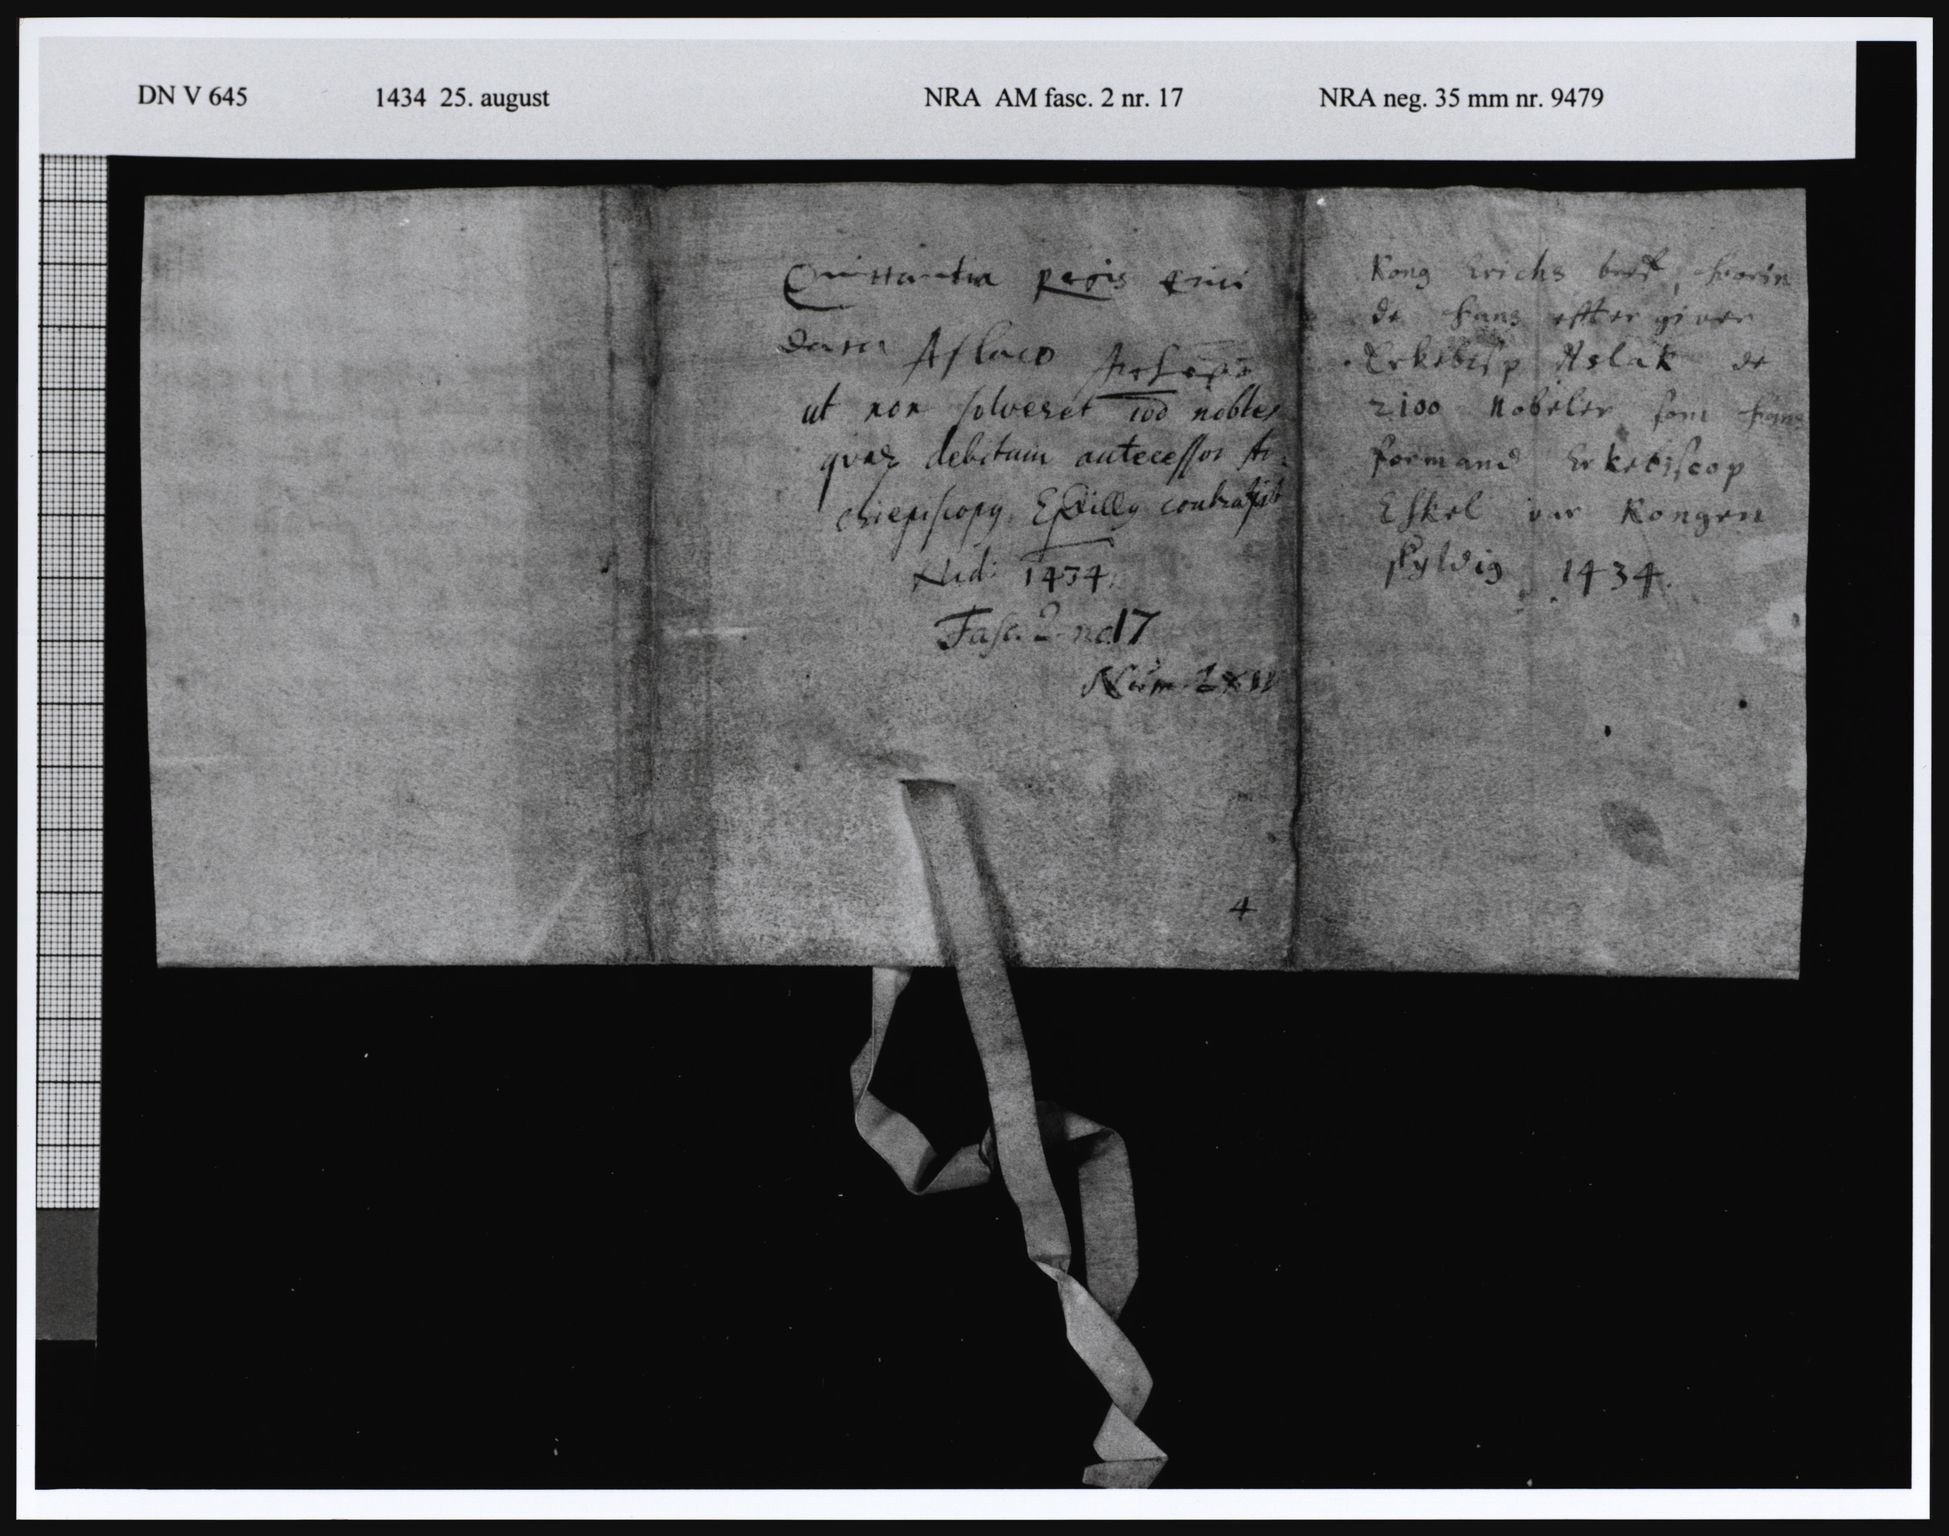 DN V 645 1434 25. august NRA AM fasc. 2 nr. 17 NRA neg. 35 mm nr. 9479
Quittantia Regis Erici
Aslaco
ut non solveret nobles
qvaz debitum antecessor Ar-
chiepiscopy contraxit
1434
Fasc. 2. no. 17
Num. LXII
4
Kong Erichs breff, hvorin
de hans efftergiver
Erkebisp Aslak de
2100 Nobeler som hans
formand Erkebiscop
Eskel var Kongen
skyldig 1434.